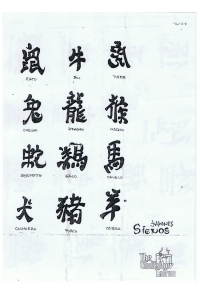 鼠 牛 虎
RATO BOI TIGRE
兔 龍 猴
COELHO DRAGÃO MACACO
蛇 鷄 馬
SERPENTE GALO CAVALO
犬 猪 羊
CACHORRO PORCO CABRA
SIGNOS
The